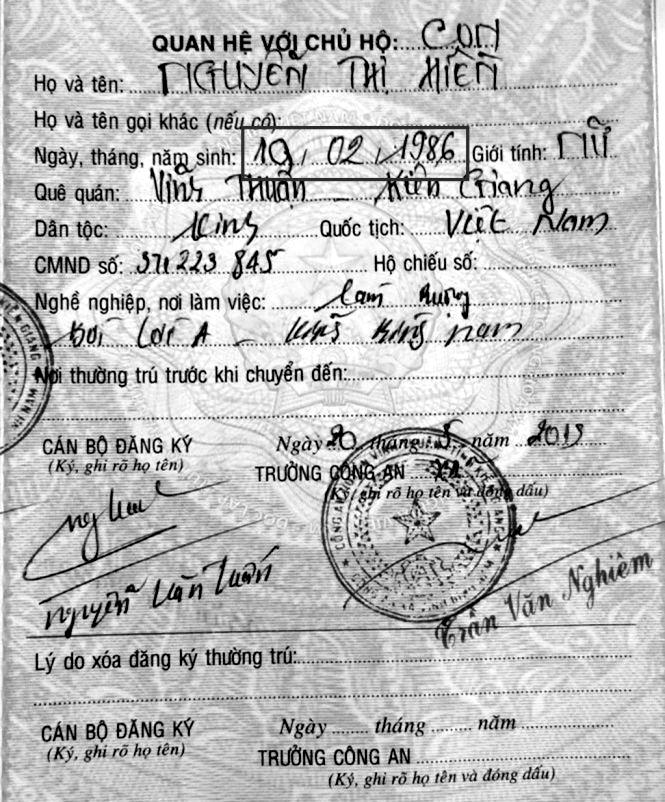 QUAN HỆ VỚI CHỦ HỘ: CON
Họ và tên: NGUYỄN THỊ HIỀN
Họ và tên gọi khác (nếu có):
Ngày, tháng, năm sinh: 10, 02, 1986 Giới tính: NỮ
Quê quán: Vĩnh Thuận - Kiên Giang
Dân tộc: Kinh Quốc tịch: Việt Nam
CMND số: 371223 845 Hộ chiếu số:
Nghề nghiệp, nơi làm việc: Làm Ruộng
Nơi thường trú trước khi chuyển đến:
CÁN BỘ ĐĂNG KÝ Ngày 20 tháng 5 năm 2013
(Ký, ghi rõ họ tên) TRƯỞNG CÔNG AN
(Ký, ghi rõ họ tên và đóng dấu)
Nguyễn Văn Tuấn
Trần Văn Nghiêm
Lý do xóa đăng ký thường trú:
CÁN BỘ ĐĂNG KÝ Ngày tháng năm
(Ký, ghi rõ họ tên) TRƯỞNG CÔNG AN
(Ký, ghi rõ họ tên và đóng dấu)